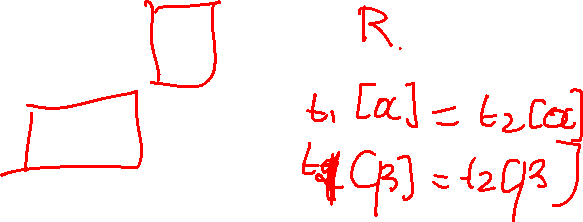 R.
t₁ [α] = t₂ [α]
t₁ [β] = t₂ [β]